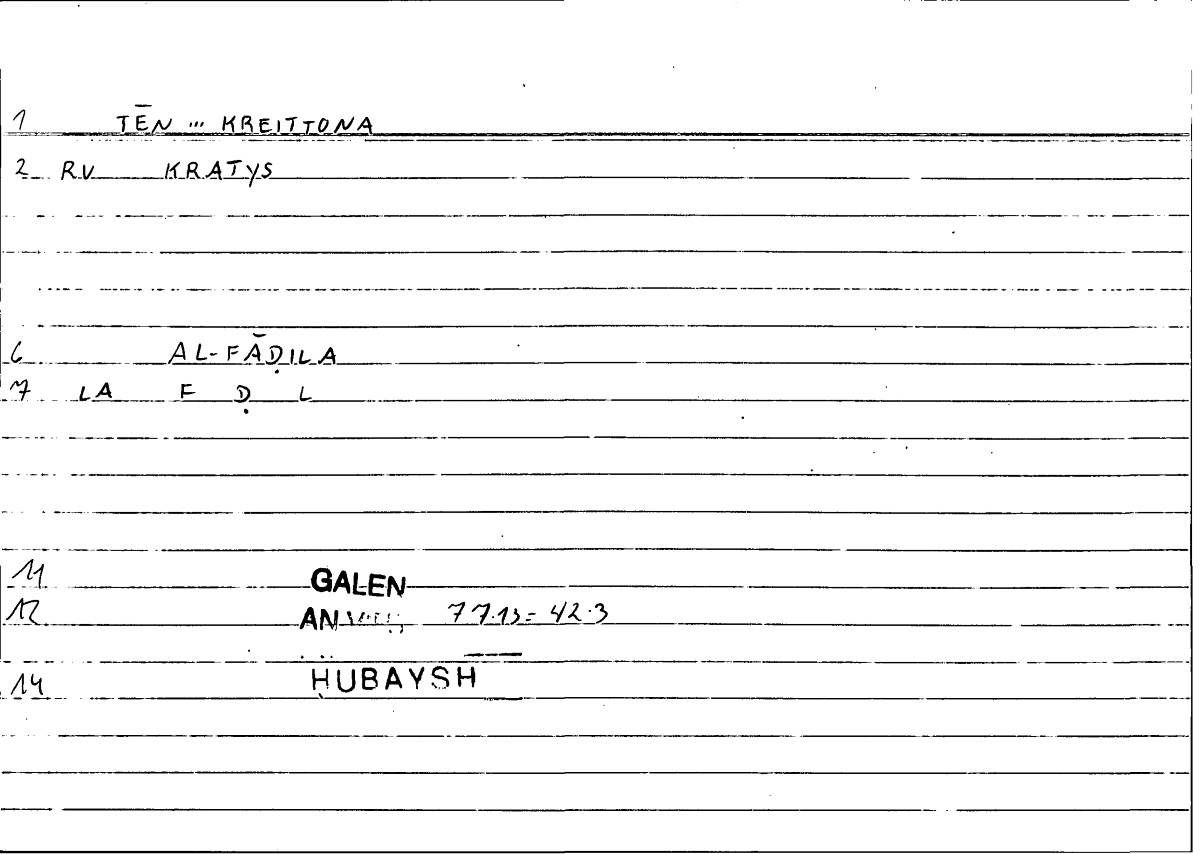 1 TĒN ... KREITTONA
2 RV KRATYS
6 AL-FĀḌILA
7 LA F Ḍ L
11 GALEN
12 AN 77.13 = 42.3
14 ḤUBAYSH